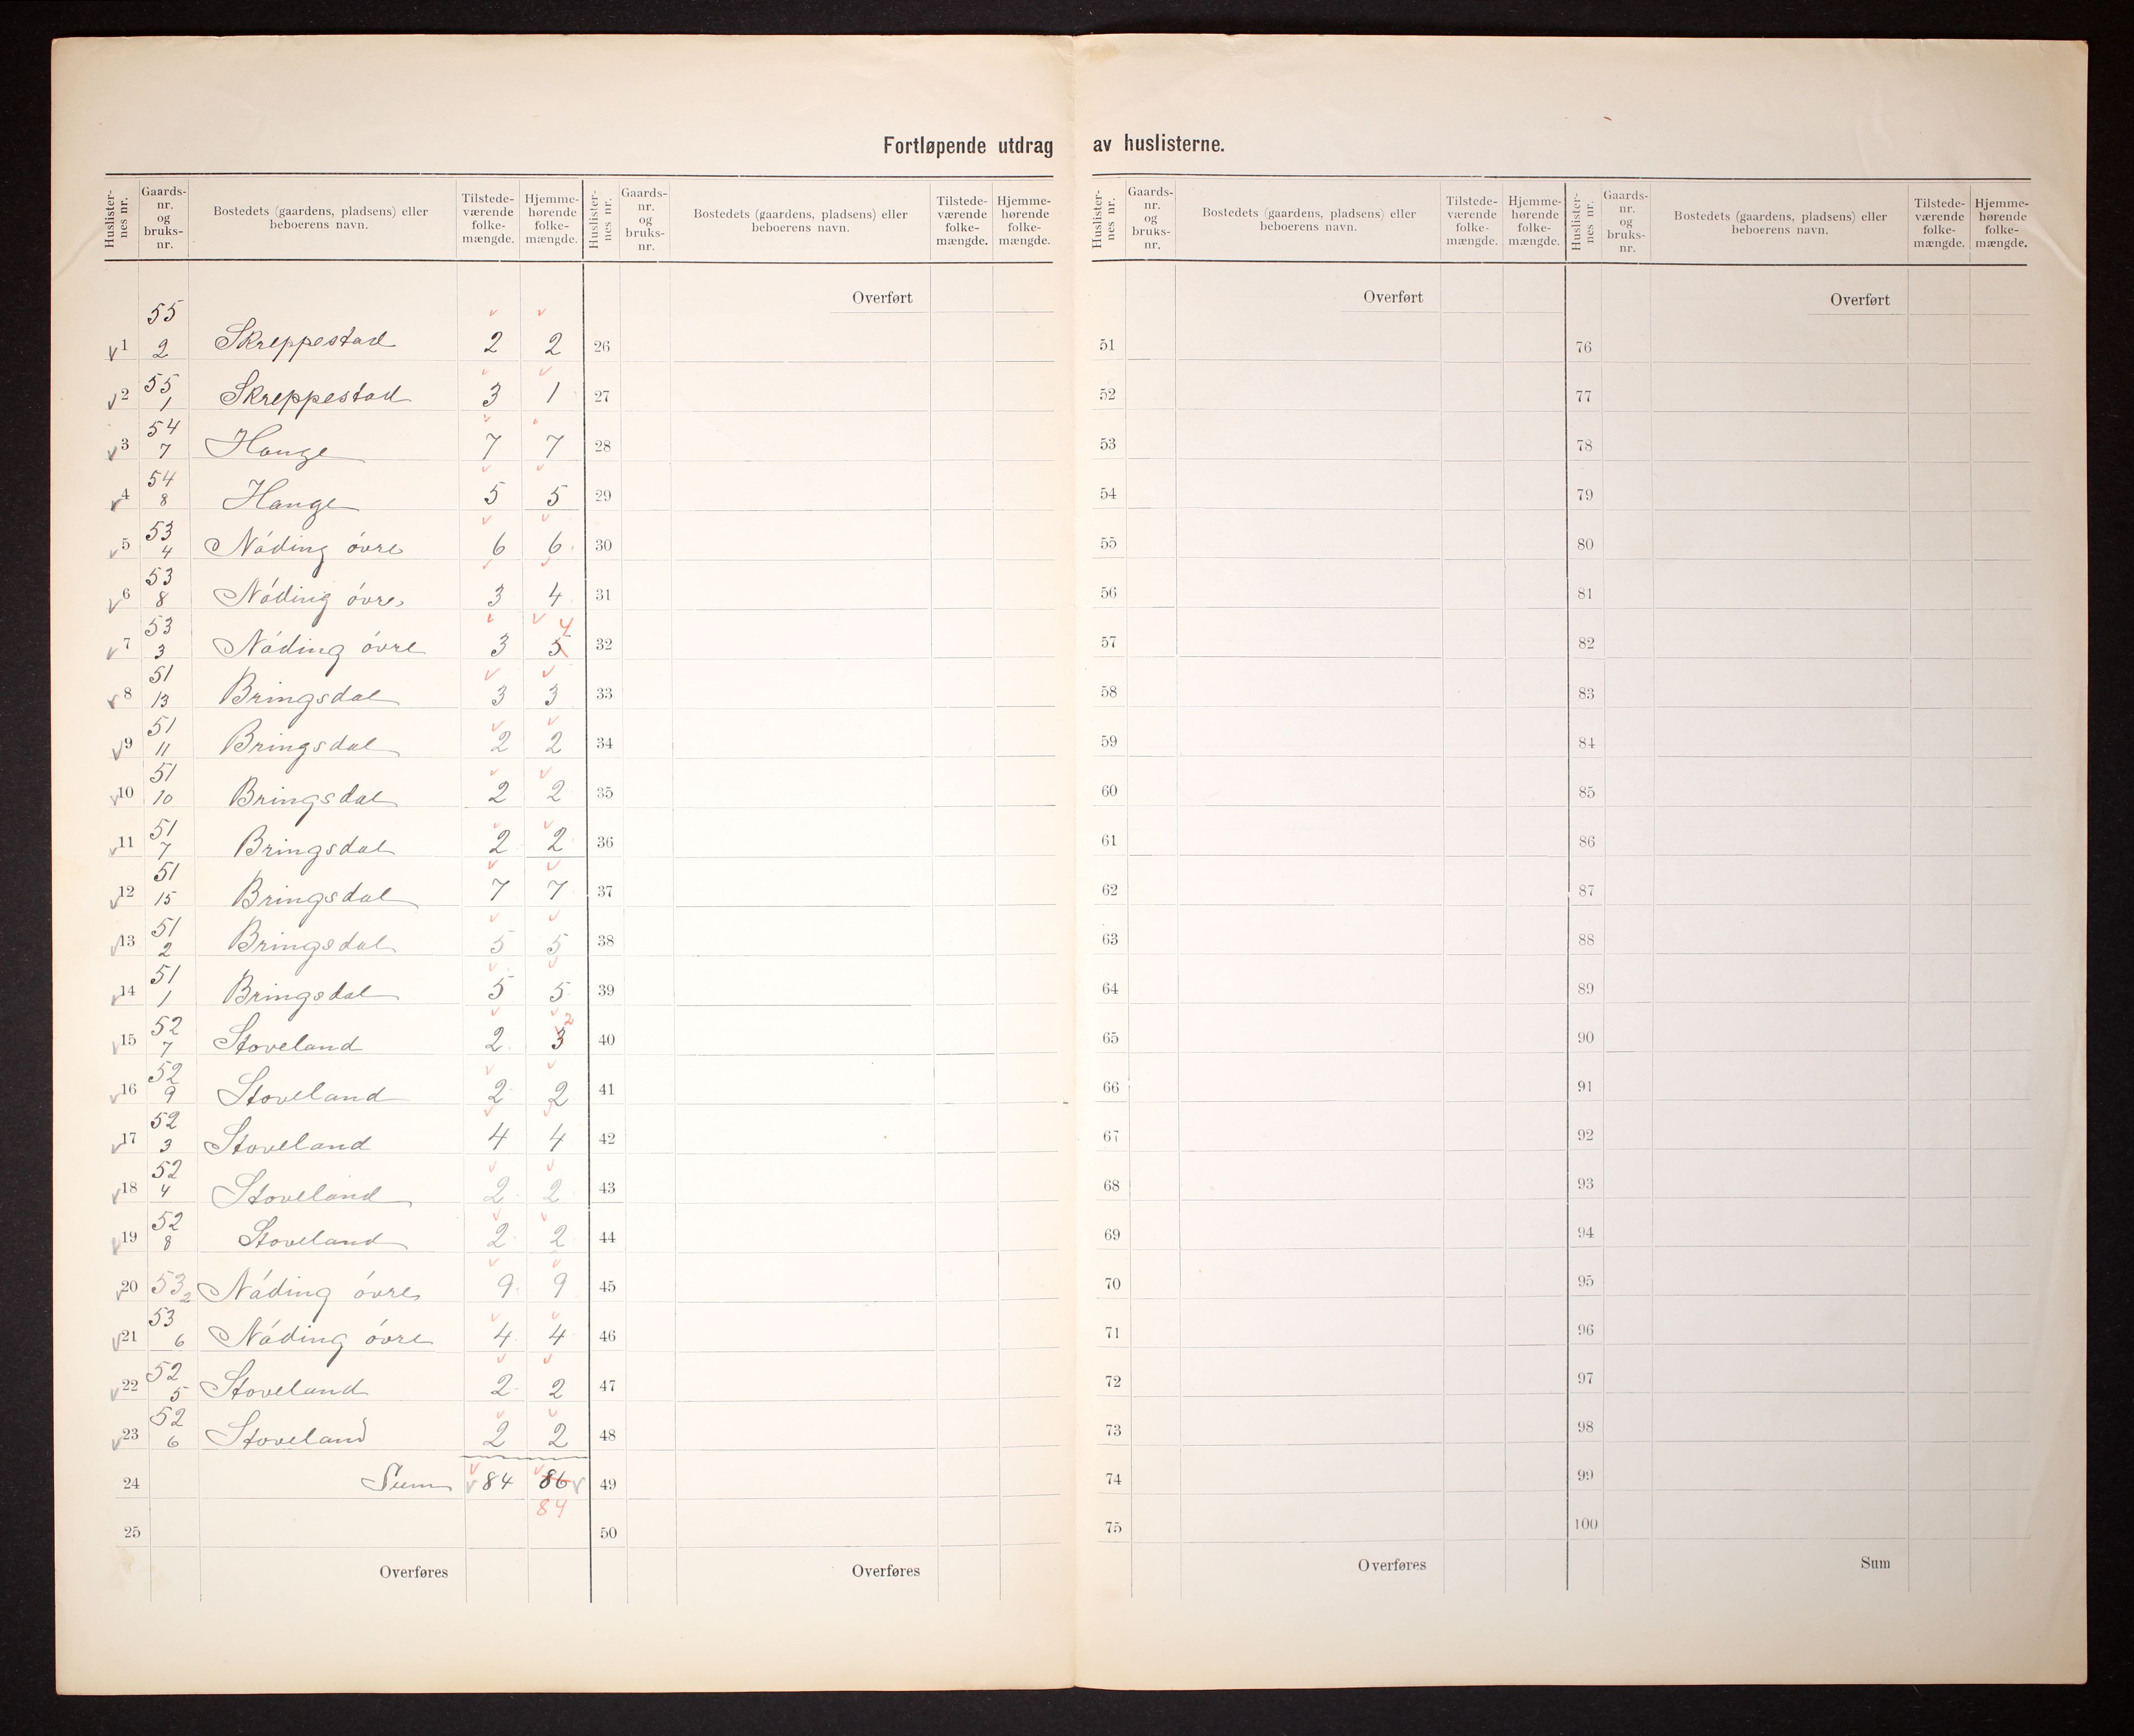 Fortløpende utdrag av huslisterne.
Huslisternes nr. Gaards-nr. og bruks-nr. Bostedets (gaardens, pladsens) eller beboerens navn. Tilstedeværende folkemængde. Hjemmehørende folkemængde. Huslisternes nr. Gaards-nr. og bruks-nr. Bostedets (gaardens, pladsens) eller beboerens navn. Tilstedeværende folkemængde. Hjemmehørende folkemængde.
Huslisternes nr. Gaards-nr. og bruks-nr. Bostedets (gaardens, pladsens) eller beboerens navn. Tilstedeværende folkemængde. Hjemmehørende folkemængde. Huslisternes nr. Gaards-nr. og bruks-nr. Bostedets (gaardens, pladsens) eller beboerens navn. Tilstedeværende folkemængde. Hjemmehørende folkemængde.
Overført Overført Overført
1 55 2 Skreppestad 2 2 26 51 76
2 55 1 Skreppestad 3 1 27 52 77
3 54 7 Hauge 7 7 28 53 78
4 54 8 Hauge 5 5 29 54 79
5 53 4 Nóding óvre 6 6 30 55 80
6 53 8 Nóding óvre 3 4 31 56 81
7 53 3 Nóding óvre 3 5 4 32 57 82
8 51 13 Bringsdal 3 3 33 58 83
9 51 11 Bringsdal 2 2 34 59 84
10 51 10 Bringsdal 2 2 35 60 85
11 51 7 Bringsdal 2 2 36 61 86
12 51 15 Bringsdal 7 7 37 62 87
13 51 2 Bringsdal 5 5 38 63 88
14 51 1 Bringsdal 5 5 39 64 89
15 52 7 Stoveland 2 3 2 40 65 90
16 52 9 Stoveland 2 2 41 66 91
17 52 3 Stoveland 4 4 42 67 92
18 52 4 Stoveland 2 2 43 68 93
19 52 8 Stoveland 2 2 44 69 94
20 53 2 Nóding óvre 9 9 45 70 95
21 53 6 Nóding óvre 4 4 46 71 96
22 52 5 Stoveland 2 2 47 72 97
23 52 6 Stoveland 2 2 48 73 98
24 Sum 84 86 49 74 99
84
25 50 75 100
Overføres Overføres Overføres Sum